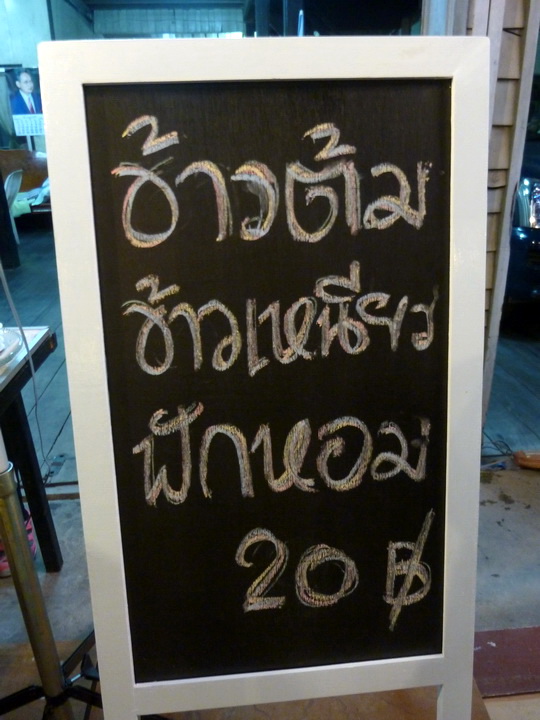 ข้าวต้ม
ข้าวเหนียว
ฟักหอม
20 ฿